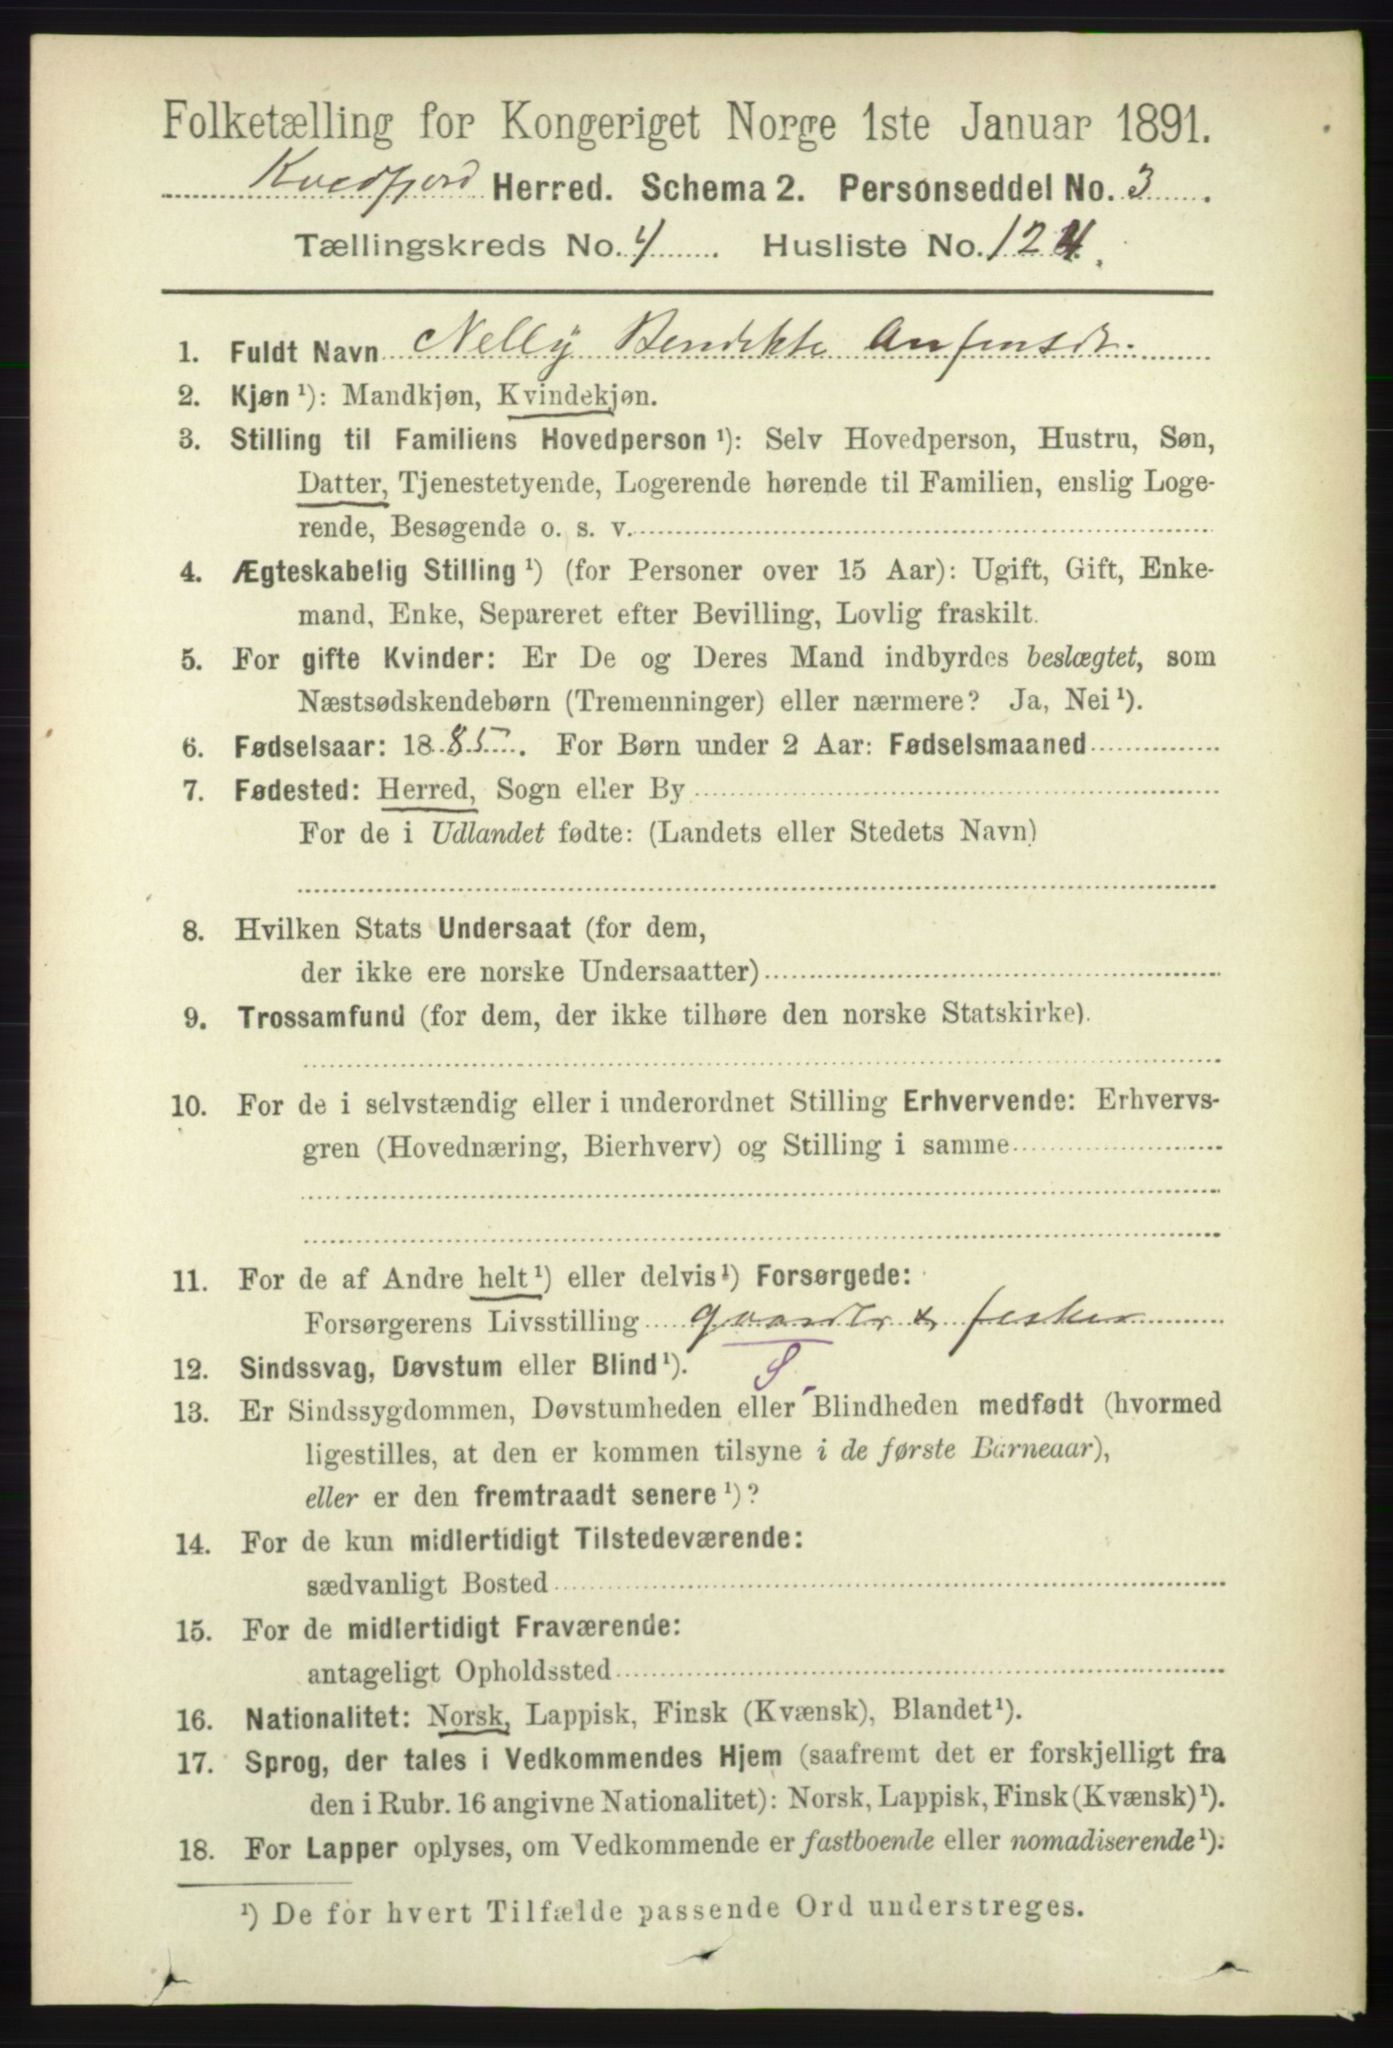 Folketælling for Kongeriget Norge 1ste Januar 1891.
Kvedfjord Herred. Schema 2. Personseddel No. 3.
Tællingskreds No. 4. Husliste No. 124.
1. Fuldt Navn Nelly Bendikte Anfensdt.
2. Kjøn ¹): Mandkjøn, Kvindekjøn.
3. Stilling til Familiens Hovedperson ¹): Selv Hovedperson, Hustru, Søn,
Datter, Tjenestetyende, Logerende hørende til Familien, enslig Loge-
rende, Besøgende o. s. v.
4. Ægteskabelig Stilling ¹) (for Personer over 15 Aar): Ugift, Gift, Enke-
mand, Enke, Separeret efter Bevilling, Lovlig fraskilt.
5. For gifte Kvinder: Er De og Deres Mand indbyrdes beslægtet, som
Næstsødskendebørn (Tremenninger) eller nærmere? Ja, Nei ¹).
6. Fødselsaar: 1885. For Børn under 2 Aar: Fødselsmaaned
7. Fødested: Herred, Sogn eller By
For de i Udlandet fødte: (Landets eller Stedets Navn)
8. Hvilken Stats Undersaat (for dem,
der ikke ere norske Undersaatter)
9. Trossamfund (for dem, der ikke tilhøre den norske Statskirke).
10. For de i selvstændig eller i underordnet Stilling Erhvervende: Erhvervs-
gren (Hovednæring, Bierhverv) og Stilling i samme
11. For de af Andre helt ¹) eller delvis ¹) Forsørgede:
Forsørgerens Livsstilling gaardbr & fisker
S.
12. Sindssvag, Døvstum eller Blind ¹).
13. Er Sindssygdommen, Døvstumheden eller Blindheden medfødt (hvormed
ligestilles, at den er kommen tilsyne i de første Barneaar),
eller er den fremtraadt senere ¹)?
14. For de kun midlertidigt Tilstedeværende:
sædvanligt Bosted
15. For de midlertidigt Fraværende:
antageligt Opholdssted
16. Nationalitet: Norsk, Lappisk, Finsk (Kvænsk), Blandet ¹).
17. Sprog, der tales i Vedkommendes Hjem (saafremt det er forskjelligt fra
den i Rubr. 16 angivne Nationalitet): Norsk, Lappisk, Finsk (Kvænsk) ¹).
18. For Lapper oplyses, om Vedkommende er fastboende eller nomadiserende ¹):
¹) De for hvert Tilfælde passende Ord understreges.